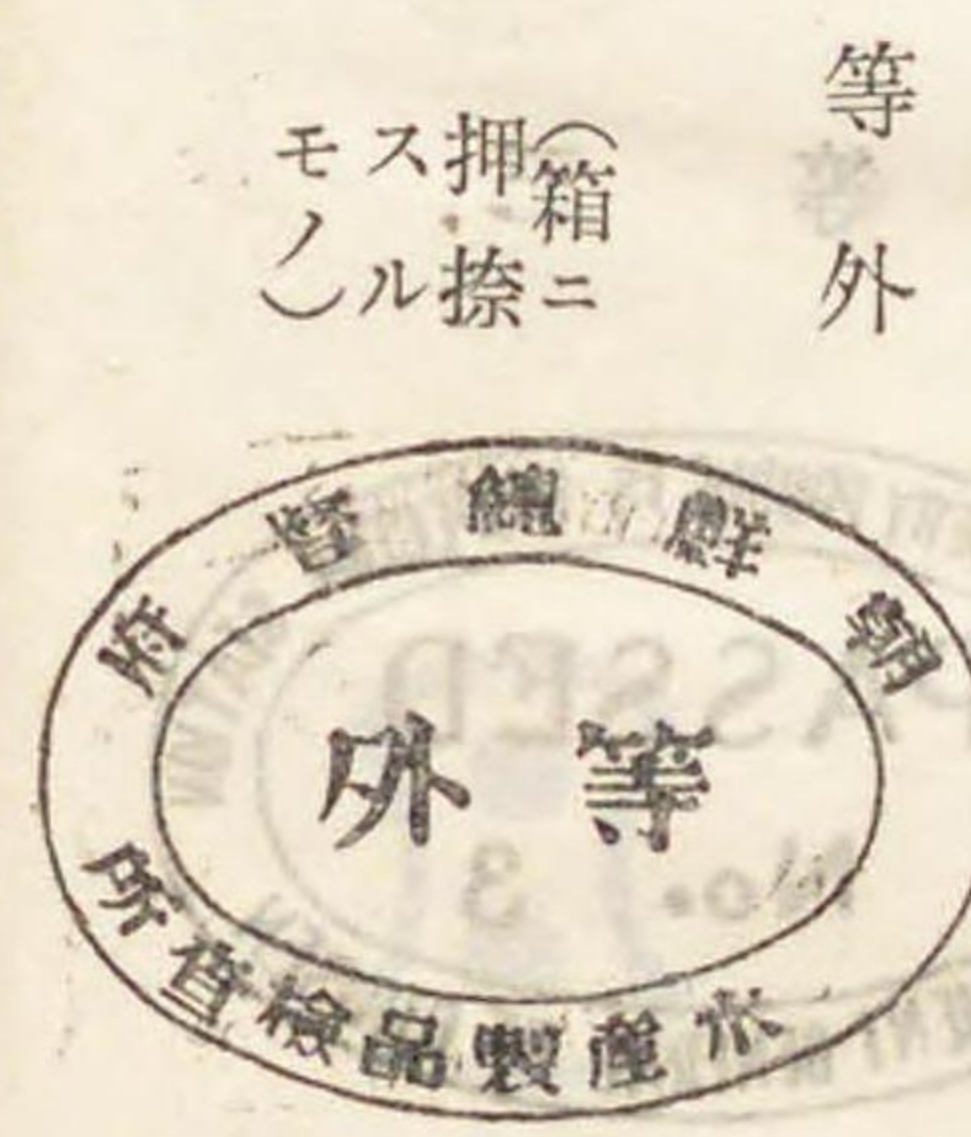 等外
(箱ニ
押捺
スル
モノ)
朝鮮總督府
等外
水產製品檢查所